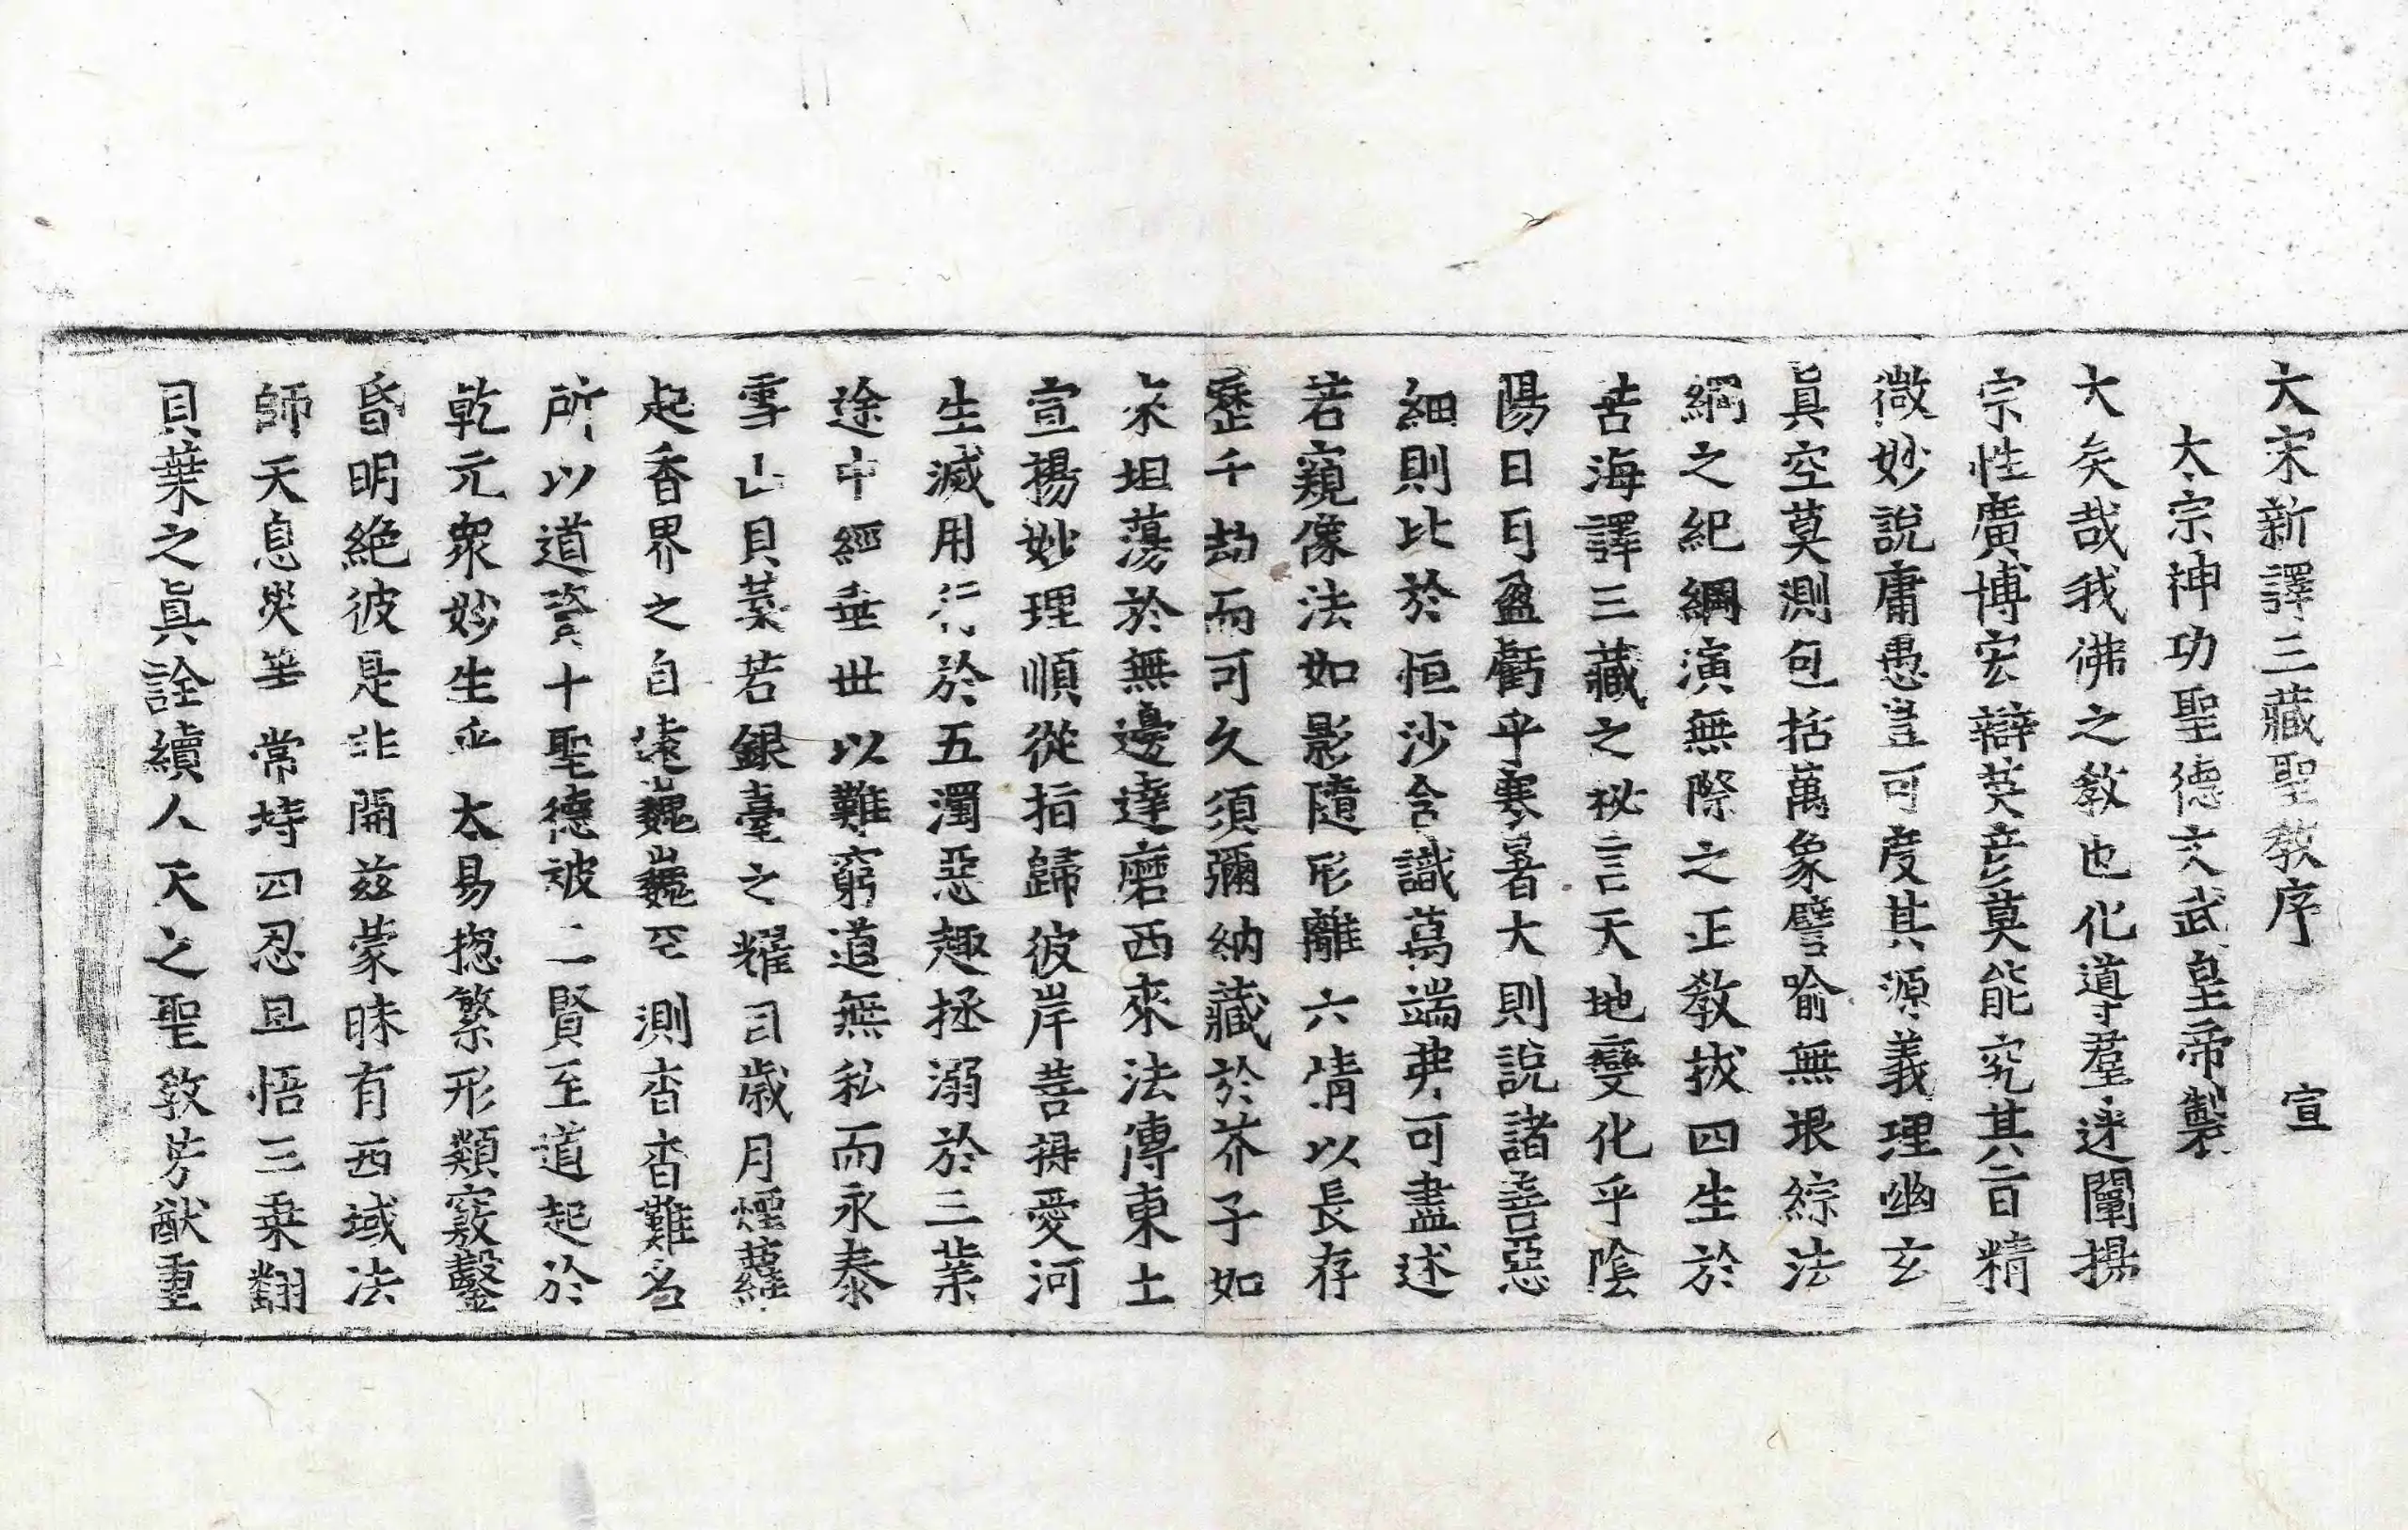 大宋新譯三藏聖教序 宣
太宗神功聖德文武皇帝製
大矣哉我佛之教也化導羣迷闡揚
宗性廣博宏辯英彦莫能究其旨精
微妙說庸愚豈可度其源義理幽玄
眞空莫測包括萬象譬喻無垠綜法
網之紀綱演無際之正教拔四生於
苦海譯三藏之秘言天地變化乎陰
陽日月盈虧乎寒暑大則說諸善惡
細則比於恒沙含識萬端弗可盡述
若窺像法如影隨形離六情以長存
歷千劫而可久須彌納藏於芥子如
來坦蕩於無邊達磨西來法傳東土
宣揚妙理順從指歸彼岸菩提愛河
生滅用行於五濁惡趣拯溺於三業
途中經垂世以難窮道無私而永泰
雪山貝葉若銀臺之耀目歲月煙蘿
起香界之自遠巍巍罕測杳杳難名
所以道資十聖德被二賢至道起於
乾元衆妙生乎太易揔繁形類竅鑿
昏明絶彼是非開兹蒙昧有西域法
師天息災等常持四忍早悟三乗翻
貝葉之眞詮續人天之聖教芳猷重